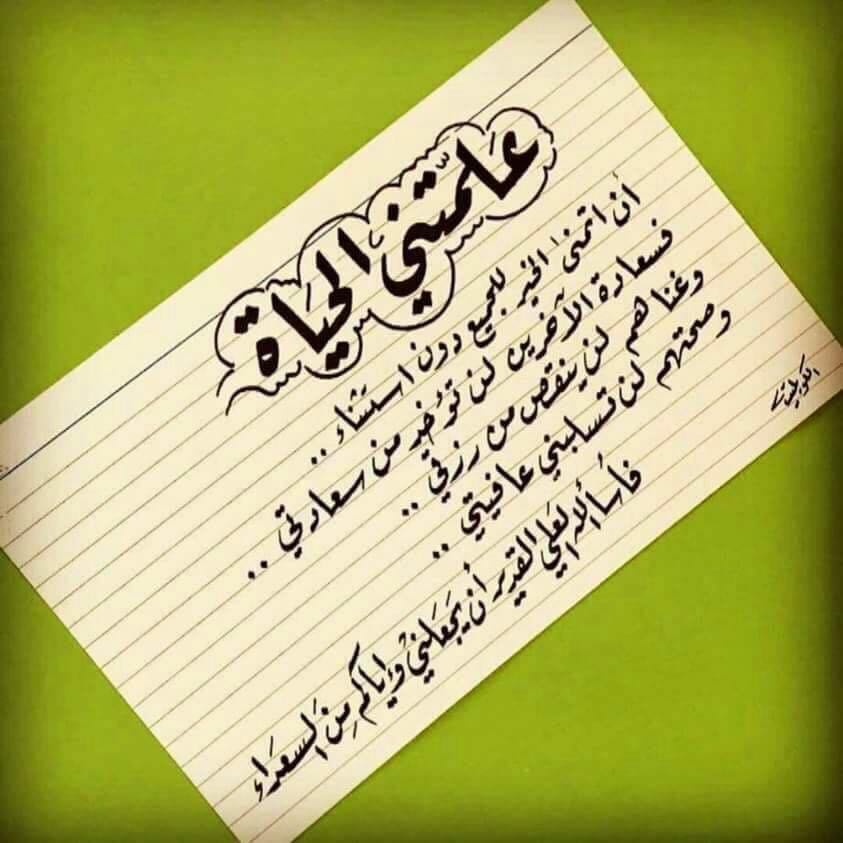 علَّمتني الحيَاة
أن اتمنىٰ الخير للجميع دون استثناء ..
فسعادة الآخرين لن تؤخذ من سعادتي ..
وغناهم لن ينقص من رزقي ..
وصحتهم لن تسلبني عافيتي ..
فأسأل الله العلي القدير أن يجعَلَني وَإياكم مِنَ السعَدَاء